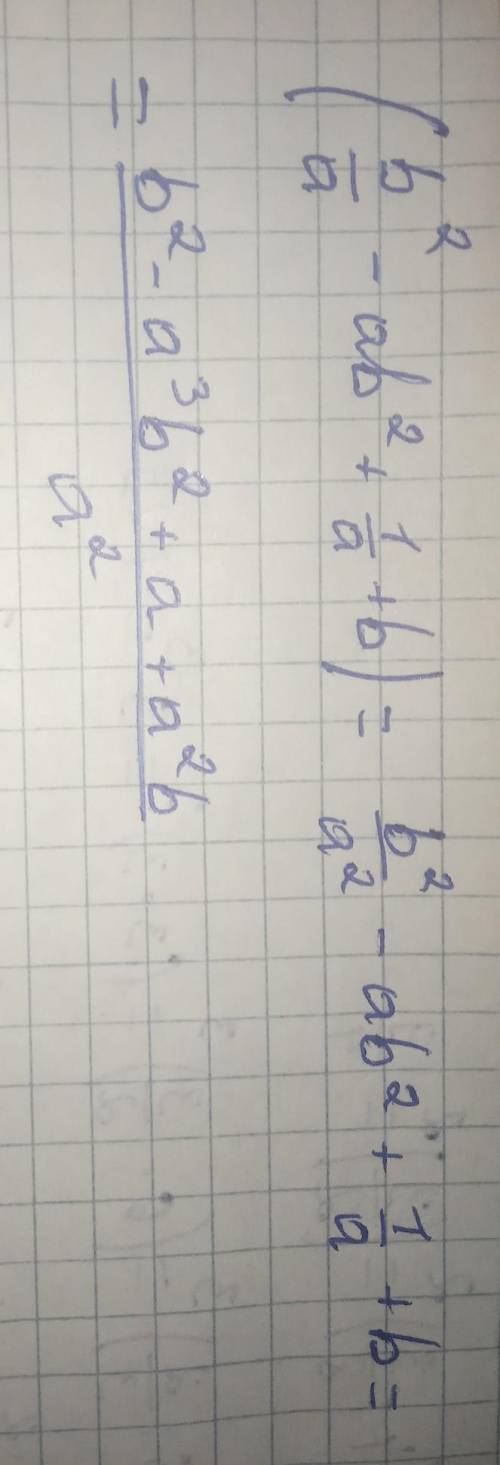 ( b/a ² - ab² + 1/a + b) = b²/a² - ab² + 1/a + b =
= b² - a³b² + a + a²b / a²